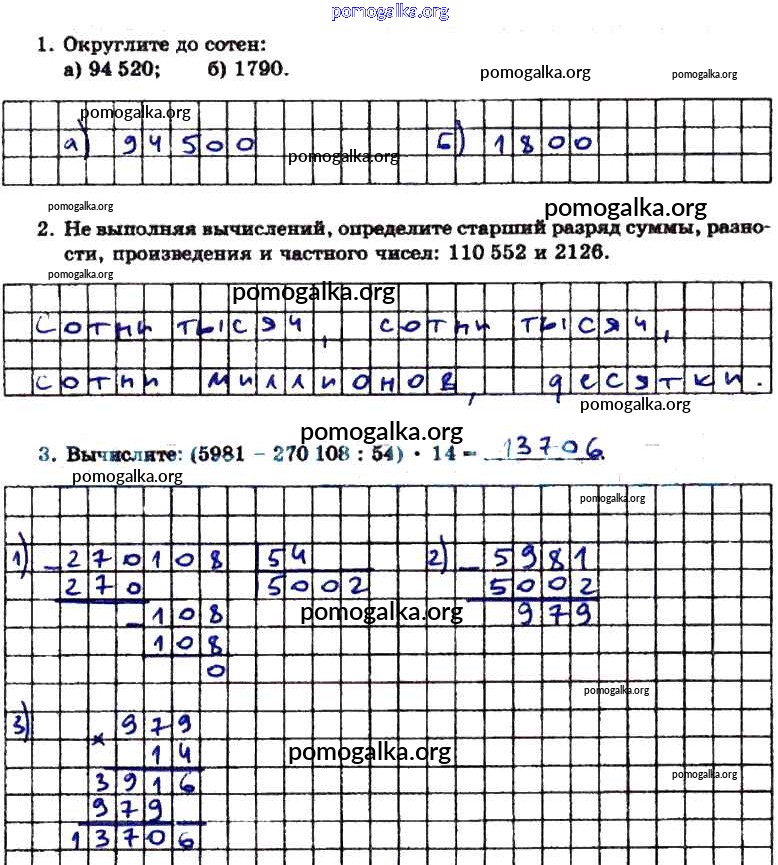 pomogalka.org
1. Округлите до сотен:
а) 94 520; б) 1790.
pomogalka.org pomogalka.org
pomogalka.org
а) 94500 б) 1800
pomogalka.org
pomogalka.org pomogalka.org
2. Не выполняя вычислений, определите старший разряд суммы, разно-
сти, произведения и частного чисел: 110 552 и 2126.
pomogalka.org
pomogalka.org
сотни тысяч, сотни тысяч,
сотни миллионов, десятки.
pomogalka.org
pomogalka.org
3. Вычислите: (5981 – 270 108 : 54) · 14 = 13706.
pomogalka.org
pomogalka.org
1) – 270108 54 2) – 5981
270 5002 5002
– 108 979
pomogalka.org
108
0
pomogalka.org
3) 979
× 14
pomogalka.org
3916
pomogalka.org
979
13706